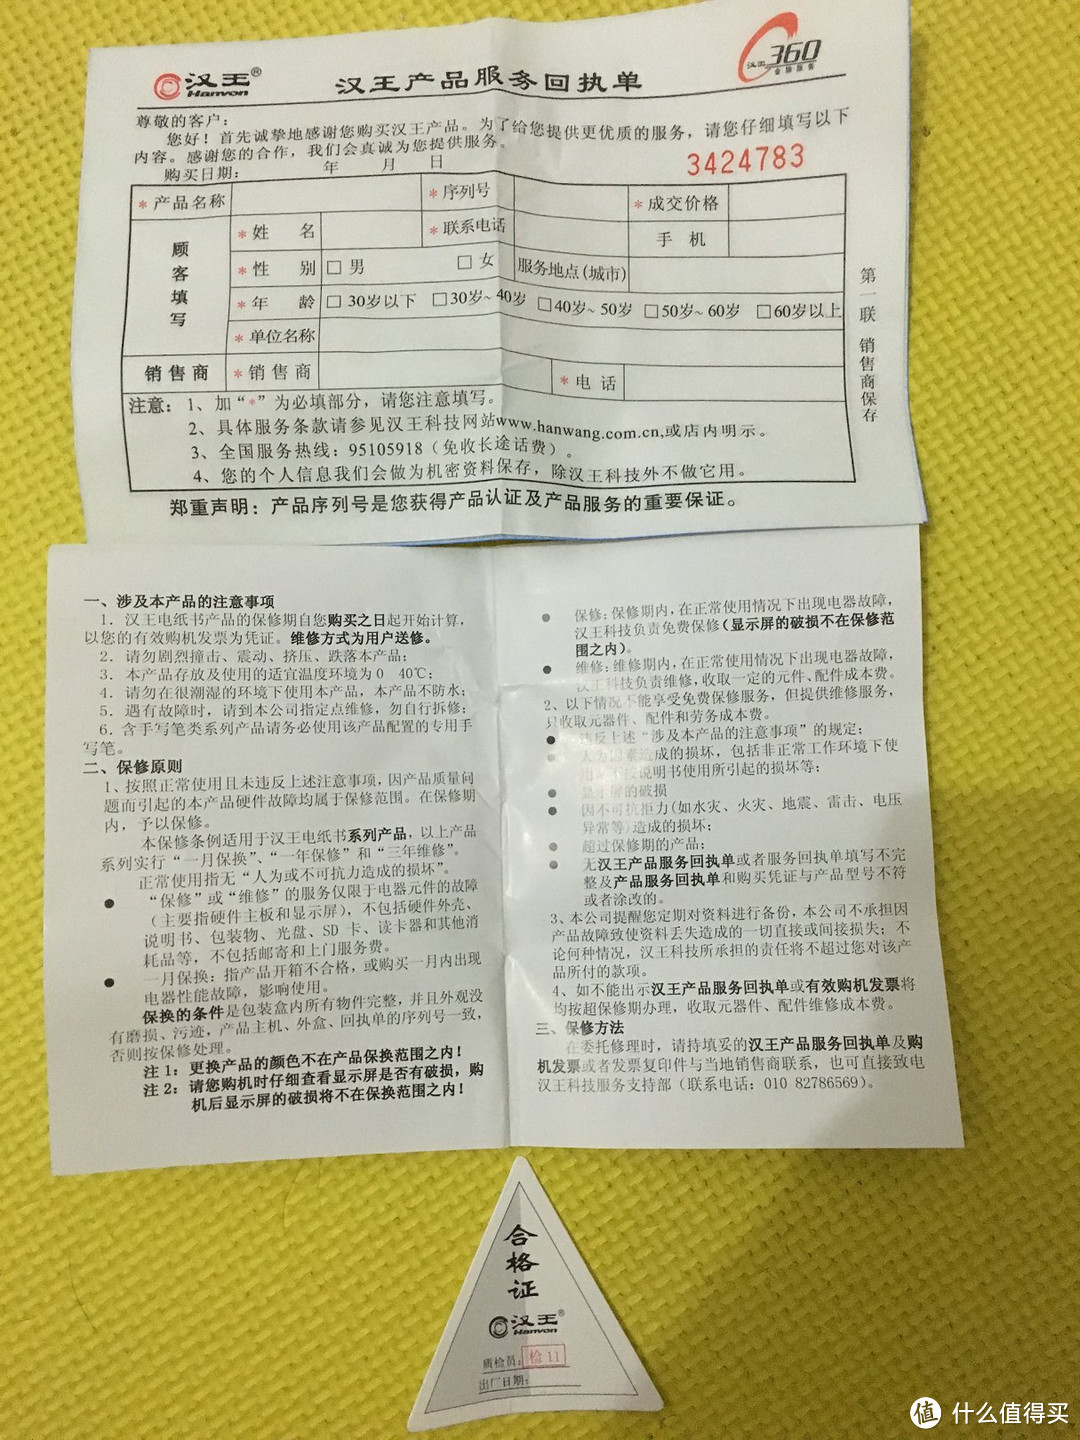 汉王®
Hanvon
汉王产品服务回执单
汉王
360
尊敬的客户：
您好！首先诚挚地感谢您购买汉王产品。为了给您提供更优质的服务，请您仔细填写以下
内容。感谢您的合作，我们会真诚为您提供服务。
购买日期： 年 月 日
3424783
*产品名称 *序列号 *成交价格
顾客填写
*姓 名 *联系电话 手 机
*性 别 □男 □女 服务地点(城市)
*年 龄 □30岁以下 □30岁~40岁 □40岁~50岁 □50岁~60岁 □60岁以上
*单位名称
销售商 *销售商 *电 话
注意：1、加“*”为必填部分，请您注意填写。
2、具体服务条款请参见汉王科技网站www.hanwang.com.cn,或店内明示。
3、全国服务热线：95105918（免收长途话费）。
4、您的个人信息我们会做为机密资料保存，除汉王科技外不做它用。
郑重声明：产品序列号是您获得产品认证及产品服务的重要保证。
第一联 销售商保存
一、涉及本产品的注意事项
1．汉王电纸书产品的保修期自您购买之日起开始计算，
以您的有效购机发票为凭证。维修方式为用户送修。
2．请勿剧烈撞击、震动、挤压、跌落本产品；
3．本产品存放及使用的适宜温度环境为0 40℃；
4．请勿在很潮湿的环境下使用本产品，本产品不防水；
5．遇有故障时，请到本公司指定点维修，勿自行拆修；
6．含手写笔类系列产品请务必使用该产品配置的专用手
写笔。
二、保修原则
1、按照正常使用且未违反上述注意事项，因产品质量问
题而引起的本产品硬件故障均属于保修范围。在保修期
内，予以保修。
本保修条例适用于汉王电纸书系列产品，以上产品
系列实行“一月保换”、“一年保修”和“三年维修”。
正常使用指无“人为或不可抗力造成的损坏”。
● “保修”或“维修”的服务仅限于电器元件的故障
（主要指硬件主板和显示屏），不包括硬件外壳、
说明书、包装物、光盘、SD 卡、读卡器和其他消
耗品等，不包括邮寄和上门服务费。
● 一月保换：指产品开箱不合格，或购买一月内出现
电器性能故障，影响使用。
保换的条件是包装盒内所有物件完整，并且外观没
有磨损、污迹，产品主机、外盒、回执单的序列号一致，
否则按保修处理。
注 1：更换产品的颜色不在产品保换范围之内！
注 2：请您购机时仔细查看显示屏是否有破损，购
机后显示屏的破损将不在保换范围之内！
● 保修：保修期内，在正常使用情况下出现电器故障，
汉王科技负责免费保修(显示屏的破损不在保修范
围之内)。
● 维修：维修期内，在正常使用情况下出现电器故障，
汉王科技负责维修，收取一定的元件、配件成本费。
2、以下情况不能享受免费保修服务，但提供维修服务，
只收取元器件、配件和劳务成本费。
● 违反上述“涉及本产品的注意事项”的规定；
● 人为因素造成的损坏，包括非正常工作环境下使
不按说明书使用所引起的损坏等；
● 显示屏的破损
● 因不可抗拒力(如水灾、火灾、地震、雷击、电压
异常等)造成的损坏；
● 超过保修期的产品；
● 无汉王产品服务回执单或者服务回执单填写不完
整及产品服务回执单和购买凭证与产品型号不符
或者涂改的。
3、本公司提醒您定期对资料进行备份，本公司不承担因
产品故障致使资料丢失造成的一切直接或间接损失；不
论何种情况，汉王科技所承担的责任将不超过您对该产
品所付的款项。
4、如不能出示汉王产品服务回执单或有效购机发票将
均按超保修期办理，收取元器件、配件维修成本费。
三、保修方法
在委托修理时，请持填妥的汉王产品服务回执单及购
机发票或者发票复印件与当地销售商联系，也可直接致电
汉王科技服务支持部（联系电话：010 82786569）。
合格证
汉王®
Hanvon
质检员：检 11
出厂日期：
值 什么值得买